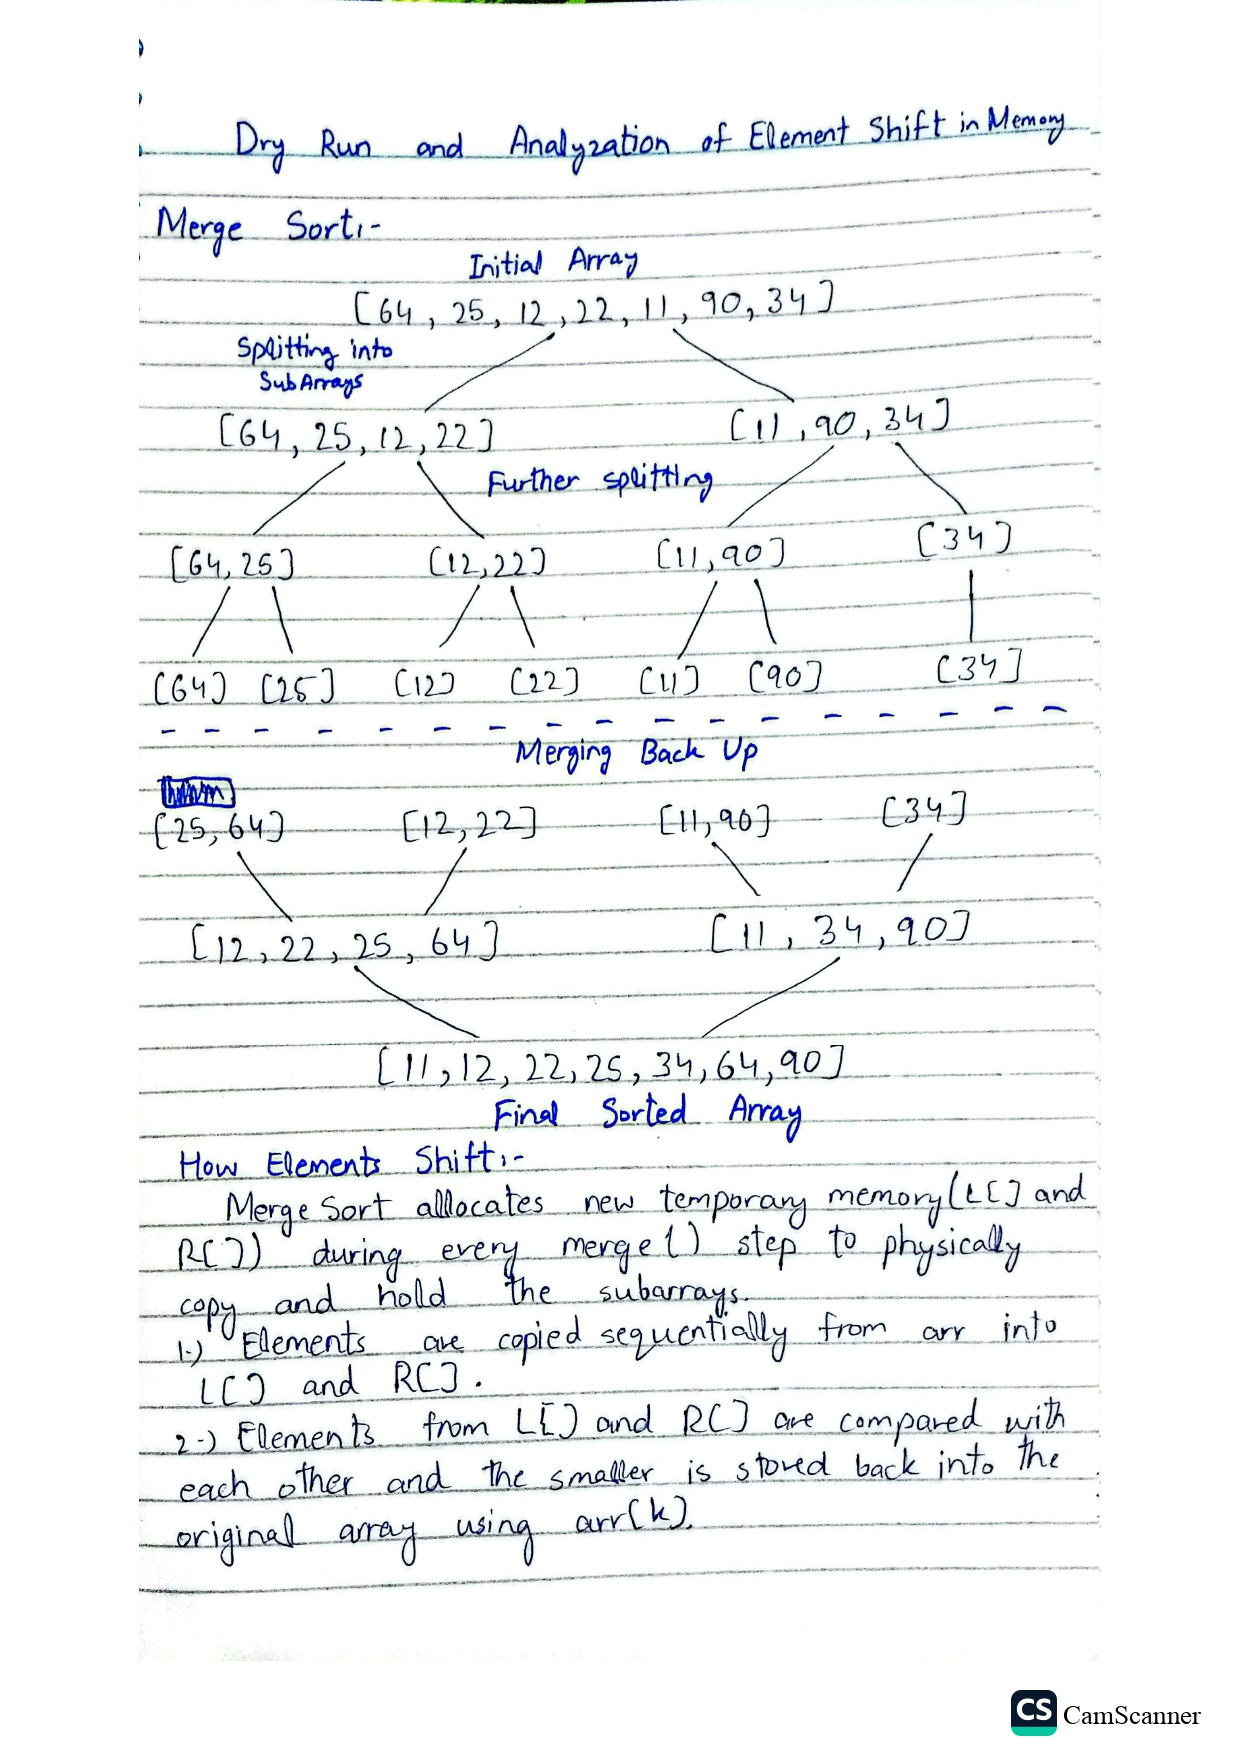 Dry Run and Analyzation of Element Shift in Memory
Merge Sort:-
Initial Array
[64, 25, 12, 22, 11, 90, 34]
Splitting into
SubArrays
[64, 25, 12, 22] [11, 90, 34]
Further splitting
[64, 25] [12, 22] [11, 90] [34]
[64] [25] [12] [22] [11] [90] [34]
Merging Back Up
[25, 64] [12, 22] [11, 90] [34]
[12, 22, 25, 64] [11, 34, 90]
[11, 12, 22, 25, 34, 64, 90]
Final Sorted Array
How Elements Shift:-
Merge Sort alllocates new temporary memory (L[] and
R[]) during every merge() step to physically
copy and hold the subarrays.
1-) Elements are copied sequentially from arr into
L[] and R[].
2-) Elements from L[] and R[] are compared with
each other and the smaller is stored back into the
original array using arr[k].
CS CamScanner